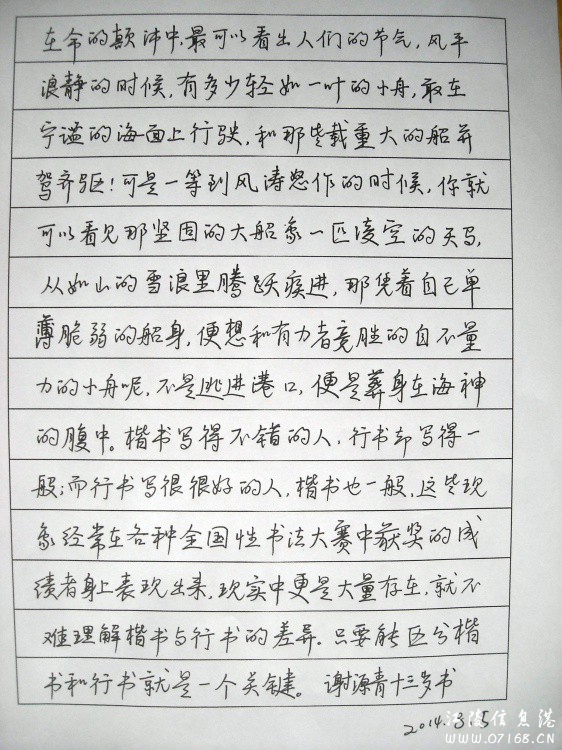 在命的颠沛中,最可以看出人们的节气,风平
浪静的时候,有多少轻如一叶的小舟,敢在
宁谧的海面上行驶,和那些载重大的船并
驾齐驱!可是一等到风涛怒作的时候,你就
可以看见那坚固的大船象一匹凌空的天马,
从如山的雪浪里腾跃疾进,那凭着自己单
薄脆弱的船身,便想和有力者竞胜的自不量
力的小舟呢,不是逃进港口,便是葬身在海神
的腹中。楷书写得不错的人,行书却写得一
般;而行书写很很好的人,楷书也一般,这些现
象经常在各种全国性书法大赛中获奖的成
绩者身上表现出来,现实中更是大量存在,就不
难理解楷书与行书的差异.只要能区分楷
书和行书就是一个关键。谢源青十三岁书
2014.3.5
江陵信息港
WWW.07168.CN